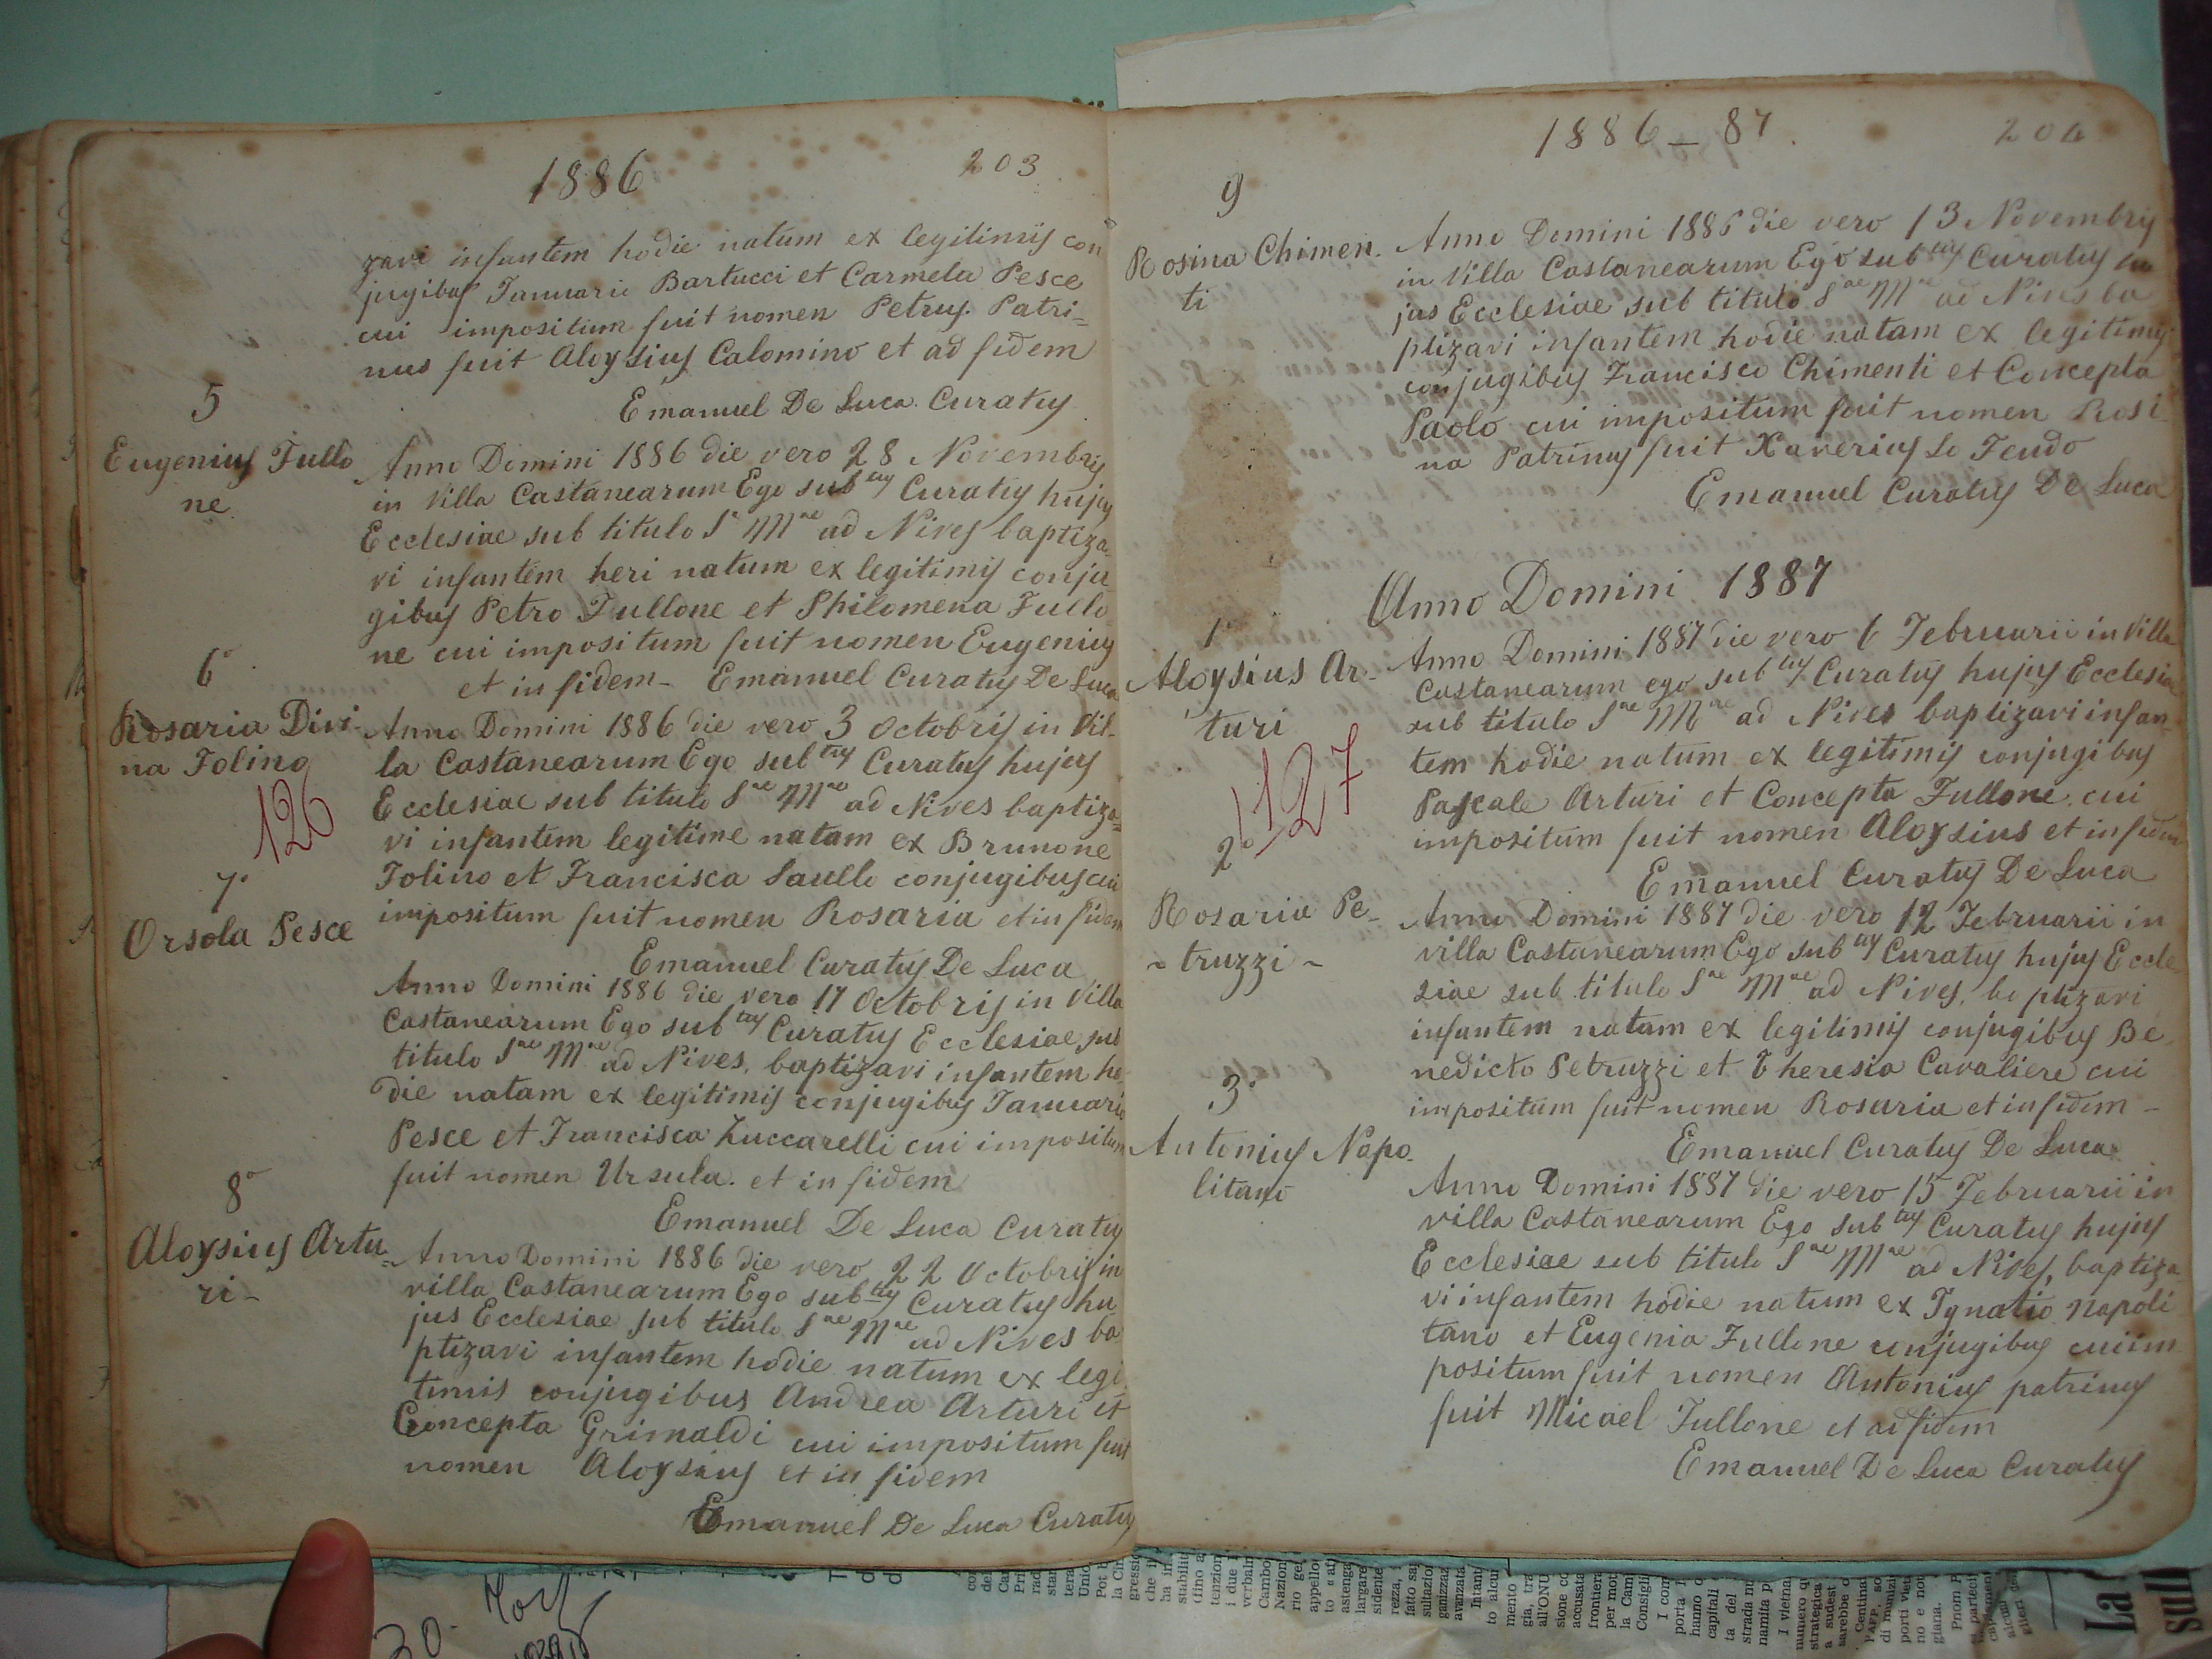 1886
203
zavi infantem hodie natum ex legitimis con
jugibus Januario Bartucci et Carmela Pesce
cui impositum fuit nomen Petrus. Patri=
nus fuit Aloysius Calomino et ad fidem
Emanuel De Luca Curatus
5
Eugenius Fullo
ne
Anno Domini 1886 die vero 28 Novembris
in Villa Castanearum Ego sub tus Curatus hujus
Ecclesiae sub titulo S Mae ad Nives baptiza
vi infantem heri natum ex legitimis conju
gibus Petro Fullone et Philomena Fullo
ne cui impositum fuit nomen Eugenius
et in fidem - Emanuel Curatus De Luca
6°
Rosaria Divi-
na Folino
126
Anno Domini 1886 die vero 3 Octobris in Vil-
la Castanearum Ego sub tus Curatus hujus
Ecclesiae sub titulo Sae Mae ad Nives baptiza=
vi infantem legitime natam ex Brunone
Folino et Francisca Saullo conjugibus cui
impositum fuit nomen Rosaria et in fidem
Emanuel Curatus De Luca
7°
Orsola Pesce
Anno Domini 1886 die vero 17 Octobris in Villa
Castanearum Ego sub tus Curatus Ecclesiae sub
titulo Sae Mae ad Nives, baptizavi infantem ho
die natam ex legitimis conjugibus Januario
Pesce et Francisca Zuccarelli cui impositum
fuit nomen Ursula. et in fidem
Emanuel De Luca Curatus
8°
Aloysius Artu=
ri -
Anno Domini 1886 die vero 22 Octobris in
villa Castanearum Ego sub tus Curatus hu
jus Ecclesiae sub titulo Sae Mae ad Nives ba
ptizavi infantem hodie natum ex legi
timis conjugibus Andrea Arturi et
Concepta Grimaldi cui impositum fuit
nomen Aloysius et in fidem
Emanuel De Luca Curatus
1886 - 87.
204
9
Rosina Chimen.
ti
Anno Domini 1886 die vero 13 Novembris
in Villa Castanearum Ego sub tus Curatus hu
jus Ecclesiae sub titulo Sae Mae ad Nives ba
ptizavi infantem hodie natam ex legitimis
conjugibus Francisco Chimenti et Concepta
Paolo cui impositum fuit nomen Rosi
na Patrinus fuit Xaverius Lo Feudo
Emanuel Curatus De Luca
Anno Domini 1887
1°
Aloysius Ar-
turi
127
Anno Domini 1887 die vero 6 Februarii in Villa
Castanearum ego sub tus Curatus hujus Ecclesiae
sub titulo Sae Mae ad Nives baptizavi infan-
tem hodie natum ex legitimis conjugibus
Pascale Arturi et Concepta Fullone cui
impositum fuit nomen Aloysius et in fidem
Emanuel Curatus De Luca
2°
Rosaria Pe-
~ truzzi ~
Anno Domini 1887 die vero 12 Februarii in
villa Castanearum Ego sub tus Curatus hujus Eccle
siae sub titulo Sae Mae ad Nives, baptizavi
infantem natam ex legitimis conjugibus Be
nedicto Petruzzi et Theresia Cavaliere cui
impositum fuit nomen Rosaria et in fidem -
Emanuel Curatus De Luca
3°
Antonius Napo
litano
Anno Domini 1887 die vero 15 Februarii in
villa Castanearum Ego sub tus Curatus hujus
Ecclesiae sub titulo Sae Mae ad Nives, baptiza
vi infantem hodie natum ex Ignatio Napoli
tano et Eugenia Fullone conjugibus cui im
positum fuit nomen Antonius patrinus
fuit Micael Fullone et ad fidem
Emanuel De Luca Curatus